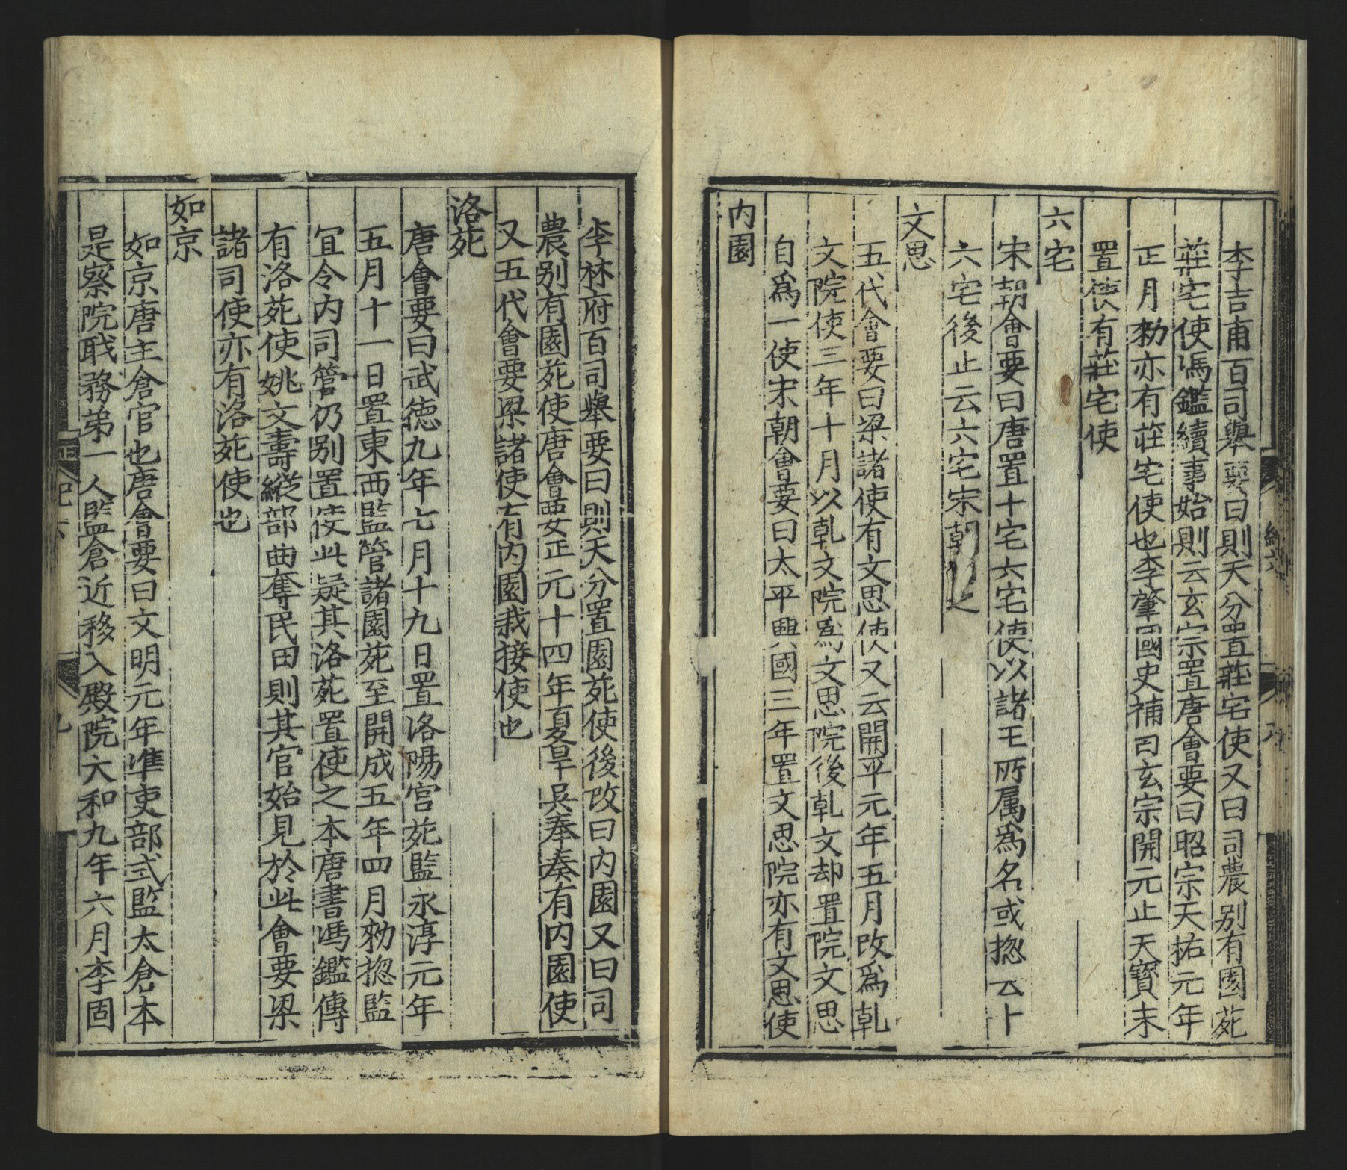 李吉甫百司舉要曰則天分置莊宅使又曰司農别有園苑
莊宅使馮鑑續事始則云玄宗置唐會要曰昭宗天祐元年
正月勑亦有莊宅使也李肇國史補曰玄宗開元止天寳末
置使有莊宅使
六宅
宋朝會要曰唐置十宅六宅使以諸王所属爲名或揔云十
六宅後止云六宅宋朝
文思
五代會要曰梁諸使有文思使又云開平元年五月改爲乹
文院使三年十月以乹文院爲文思院後乹文却置院文思
自爲一使宋朝會要曰太平興國三年置文思院亦有文思使
内園
李林府百司舉要曰則天分置園苑使後改曰内園又曰司
農别有園苑使唐會要正元十四年夏旱吳奉奏有内園使
又五代會要梁諸使有内園栽接使也
洛苑
唐會要曰武德九年七月十九日置洛陽宫苑監永淳元年
五月十一日置東西監管諸園苑至開成五年四月勑揔監
冝令内司管仍别置使此疑其洛苑置使之本唐書馮鑑傳
有洛苑使姚文壽縱部曲奪民田則其官始見於此會要梁
諸司使亦有洛苑使也
如京
如京唐主倉官也唐會要曰文明元年凖吏部式監太倉本
是察院職務弟一人監倉近移入殿院大和九年六月李固